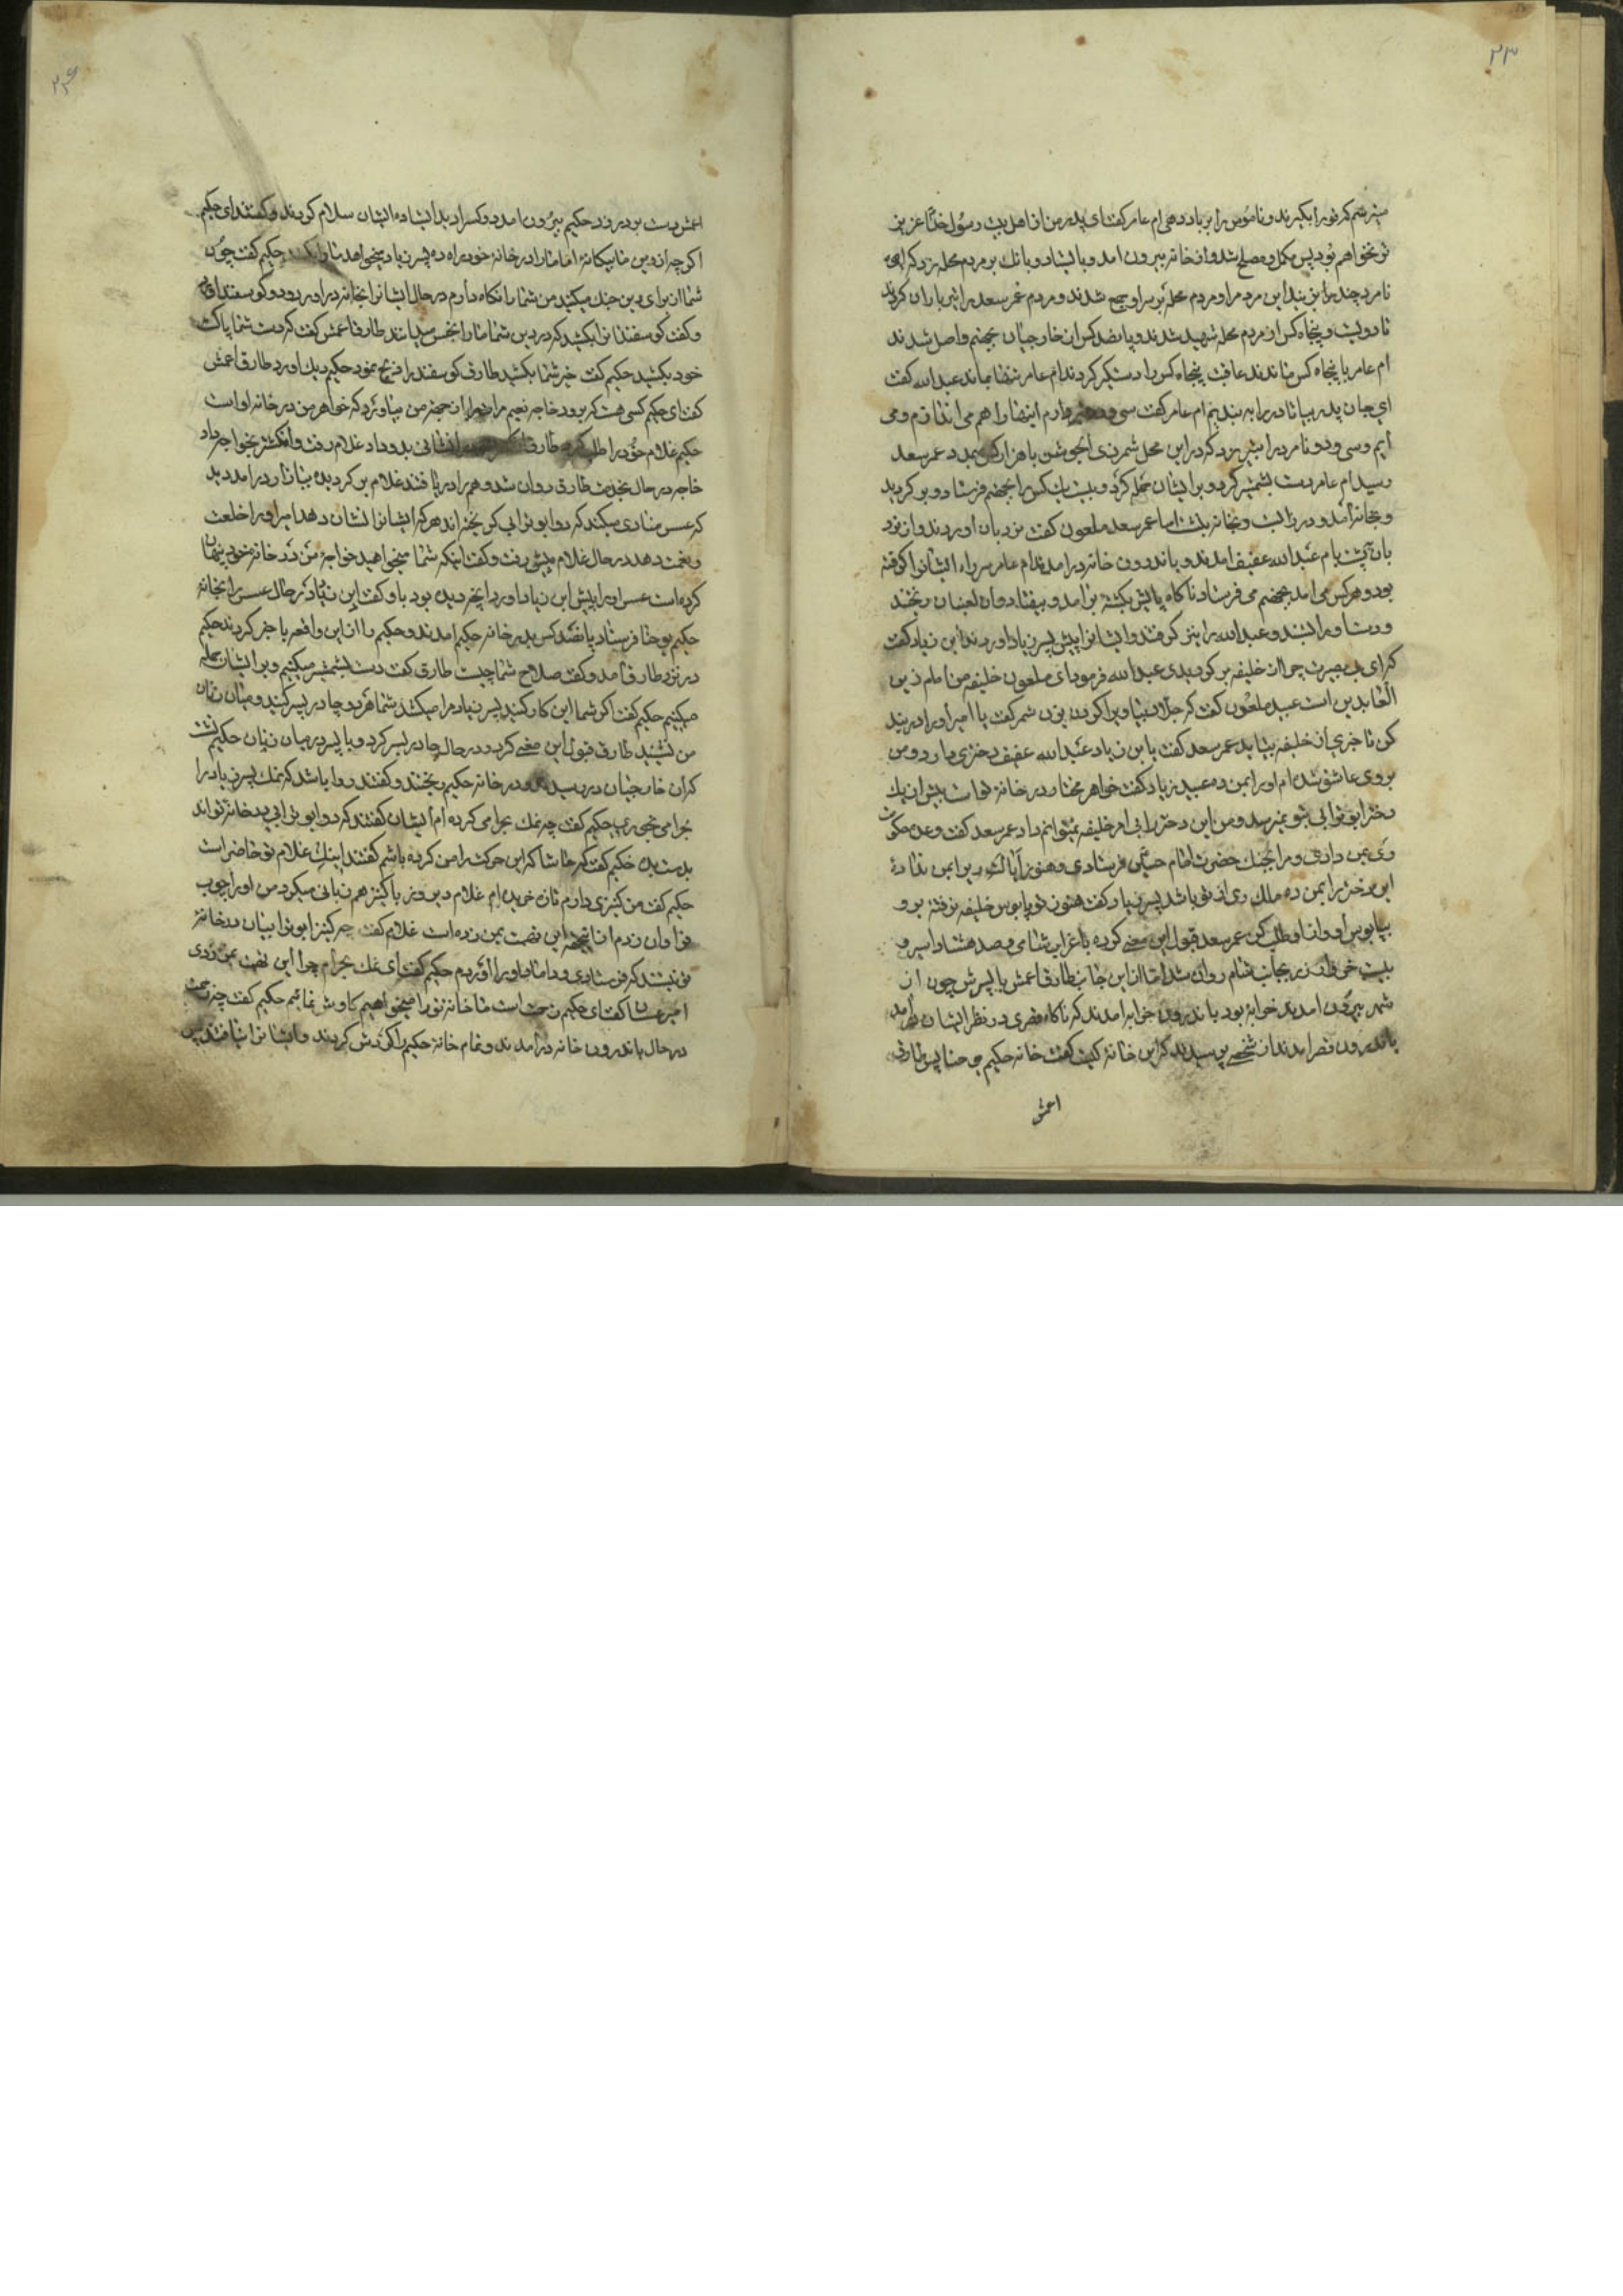 ۲۳
میترسم که تو را بگیرند و ناموس مرا بر باد دهی ام عامر گفت ای پدر من از اهل بیت رسول خدا عزیز
تر نخواهم بود پس مکمل و مصلح شد و از خانه بیرون امد و بایستاد و بانک بر مردم محله زد که ای
نامرد چند مرا بزنید این مرد مراد مردم محله بر سر او جمع شدند و مردم عمر سعد را تیر باران کردند
تا دویست و پنجاه کس از مردم محله شهید شدند و پانصد کس از خارجیان بجهنم واصل شدند
ام عامر با پنجاه کس ماندند عاقبت پنجاه کس را دستکیر کردند ام عامر تنها بماند عبد الله گفت
ای جان پدر بیا تا در را به بندیم ام عامر گفت سی و دو تیر دارم اینها را هم می اندازم و می
ایم و سی و دو نامرد را بتیر بزد که در این محل شمر ذی الجوشن با هزار کس بمدد عمر سعد
رسید ام عامر دست بشمشیر کرد و بر ایشان حمله کرد و بیست یک کس را بجهنم فرستاد و بر کردید
و بخانه آمد و در را بست و بخانه نشست اما عمر سعد ملعون گفت نردبان اوردند و از نرد
بان به پشت بام عبد الله عفیف امدند و باندرون خانه در امدند ام عامر سر راه ایشان را کرفته
بود و هر کس می امد بجهنم می فرستاد ناکاه پایش بکشته بر امد و بیفتاد و ان لعینان ریختند
و دست او را بستند و عبد الله را نیز کرفتند و ایشانرا پیش پسر زیاد اوردند ابن زیاد کفت
که ای بی بصیرت چرا از خلیفه بر کردیدی عبد الله فرمود ای ملعون خلیفه من امام زین
العابدین است عبید ملعون کفت که جلاد بیا و ویرا کردن بزن شمر کفت یا امیر او را در بند
کن تا خبری از خلیفه بیاید عمر سعد کفت یا بن زیاد عبد الله عفیف دختری دارد و من
بروی عاشق شده ام او را بمن ده عبید زیاد کفت خواهر مختار در خانه تو است بیش از یک
دختر ابو ترابی بتو نمیرسد و من این دختر را بی امر خلیفه نمیتوانم داد عمر سعد گفت وعده حکومت
ری بمن دادی و مرا بجنک حضرت امام حسین فرستادی و هنوز ایالت ری را بمن نداده
این دختر را بمن ده ملک ری از تو باشد پسر زیاد کفت هنوز تو پابوس خلیفه نرفته برو
بپابوس او و از او طلب کن عمر سعد قبول این معنی کرده با عرابی شامی و صد هشتاد اسیر و
بیست خروار زر بجانب شام روان شد اما از این جانب طارق اعمش با پسرش چون از
شهر بیرون امدند خرابه بود باندرون خرابه امدند که ناکاه قصری در نظر ایشان در آمد
باندرون قصر امدند از شخصی پرسیدند که این خانه کیست کفت خانه حکیم یوحنا پس طارق
اعمش
۲۴
اعمش دست بر در زد حکیم بیرون امد دو کس را دید ایستاده ایشان سلام کردند و گفتند ای حکیم
اگر چه از دین ما بیکانه اما ما را در خانه خود راه ده پسر زیاد میخواهد ما را بکشد حکیم کفت چون
شما از برای دین جنک میکنید من شما را نکاه دارم در حال ایشانرا بخانه در اورد و دو کوسفند
و کفت کوسفندانرا بکشید که در دین شما ما را نجس میدانند طارق اعمش کفت که دست شما پاکست
خود بکشید حکیم کفت خیر شما بکشید طارق کوسفند را ذبح نمود حکیم دیک اورد طارق اعمش
کفت ای حکیم کسی هست که برود خاجه نعیم را از جهة من بیاورد که خواهر من در خانه او است
حکیم غلام خود را طلب کرد طارق نشانی بدو داد غلام رفت و انکشتر بخواجه داد
خاجه در حال بخدمت طارق روان شد و همه را دریافتند غلام بر کردیده ببازار در امد دید
که عسس منادی میکند که دو ابو ترابی کریخته اند هر که ایشانرا نشان دهد امیر او را خلعت
و نعمت دهد در حال غلام پیش رفت و کفت اینکه شما میخواهید خواجه من در خانه خود پنهان
کرده است عسس او را پیش ابن زیاد اورد انچه دیده بود باو کفت ابن زیاد در حال عسس را بخانه
حکیم یوحنا فرستاد پانصد کس بدر خانه حکیم امدند و حکیم را از این واقعه با خبر کردند حکیم
در نزد طارق آمد و کفت صلاح شما چیست طارق کفت دست بشمشیر میکنیم و بر ایشان حمله
میکنیم حکیم کفت اگر شما این کار کنید پسر زیاد مرا میکشد شما هر دو چادر بسر کنید و میان زنان
من نشینید طارق قبول این معنی کرد و در حال چادر بسر کرد و با پسر در میان زنان حکیم نشست
که ان خارجیان در رسیدند و در خانه حکیم ریختند و کفتند روا باشد که نمک پسر زیاد را
بحرامی خوری حکیم کفت چه نمک بحرامی کرده ام ایشان کفتند که دو ابو ترابی در خانه تو اند
بدست بده حکیم کفت که حاشا که این حرکت را من کرده باشم کفتند اینک غلام تو حاضر است
حکیم کفت من کنیزی دارم تازه خریده ام غلام دیروز با کنیز هم زبانی میکرد من او را چوب
فراوان زدم از انجهة این تهمت بمن زده است غلام کفت چه کنیز ابو ترابیان در خانه
تو نیستند که فرستادی و داماد او را اوردم حکیم کفت ای نمک بحرام چرا این تهمت بمن زدی
کفت ای حکیم زحمت است ما خانه تو را میخواهیم کاوش نمائیم حکیم کفت چه زحمت
در حال باندرون خانه در امدند و تمام خانه حکیم را کردش کردند و ایشانرا نیافتند پس